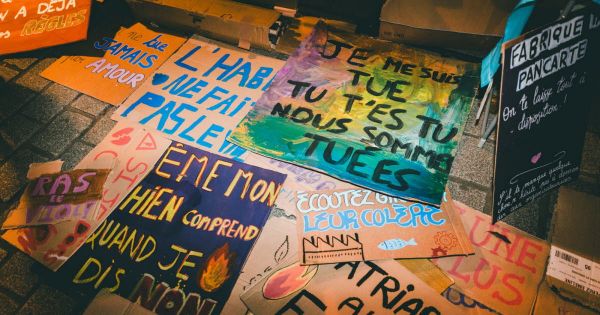 N A DÉJÀ
RÈGLES
JAMAIS tue
AMOUR
L'HABI
NE FAI
PAS LE V
JE ME SUIS
TUE
TU T'ES TU
NOUS SOMME
TUÉES
FABRIQUE
PANCARTE
On te laisse tout à
disposition!
RAS
LE
VIOL
ÊME MON
HIEN COMPREND
QUAND JE
DIS NON
ÉCOUTEZ
LEUR COLÈRE
UNE
LUS
ATRIAR